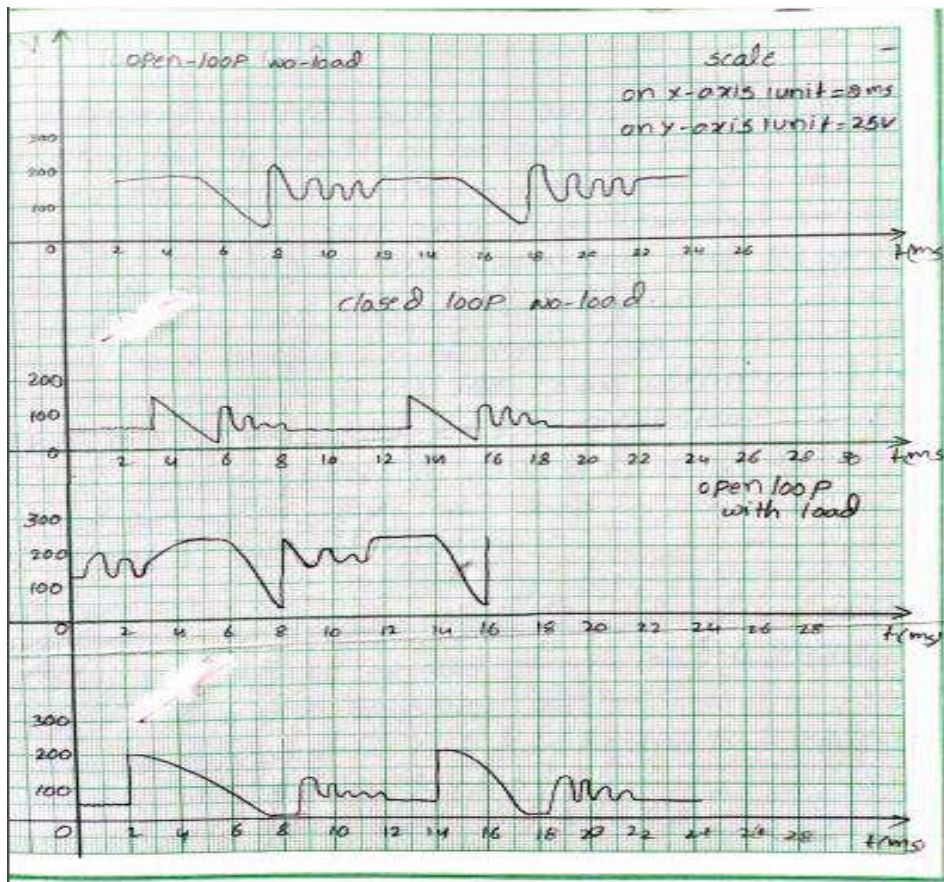 V
open-loop no-load
scale
on x-axis 1unit=2ms
on y-axis 1unit=25V
300
200
100
0 2 4 6 8 10 12 14 16 18 20 22 24 26
t(ms
closed loop no-load
200
100
0 2 4 6 8 10 12 14 16 18 20 22 24 26 28 30 t(ms
open loop
with load
300
200
100
0 2 4 6 8 10 12 14 16 18 20 22 24 26 28
t(ms)
300
200
100
0 2 4 6 8 10 12 14 16 18 20 22 24 28
t(ms